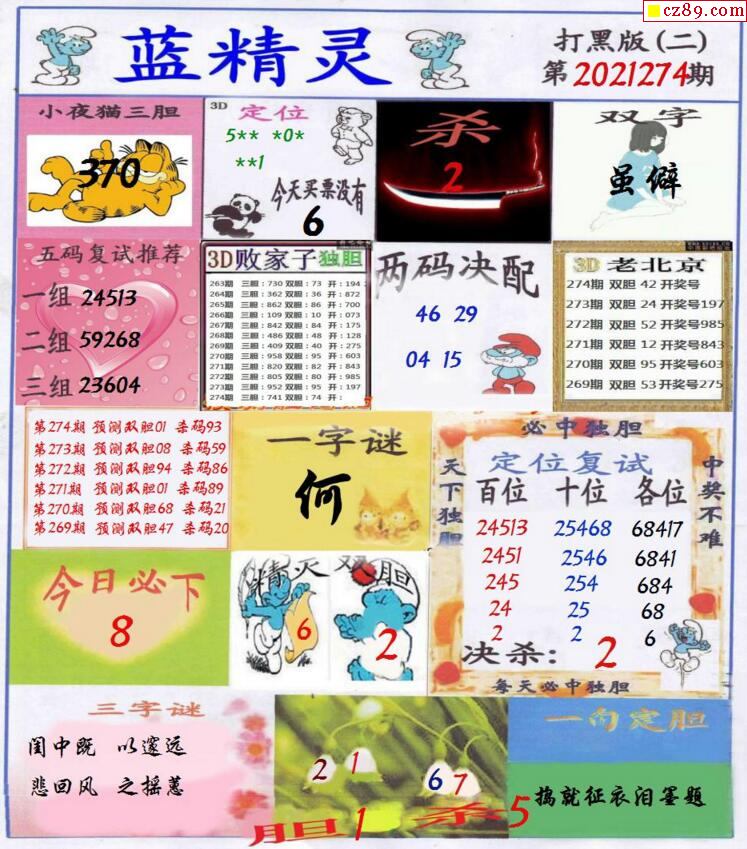 cz89.com
蓝精灵
打黑版(二)
第2021274期
小夜猫三胆
370
3D 定位
5** *0*
**1
今天买票没有
6
杀
2
双字
虽僻
五码复试推荐
一组 24513
二组 59268
三组 23604
3D败家子独胆
263期 三胆：730 双胆：73 开：194
264期 三胆：362 双胆：36 开：872
265期 三胆：862 双胆：86 开：700
266期 三胆：109 双胆：10 开：073
267期 三胆：842 双胆：84 开：175
268期 三胆：486 双胆：48 开：128
269期 三胆：409 双胆：40 开：275
270期 三胆：958 双胆：95 开：603
271期 三胆：820 双胆：82 开：843
272期 三胆：805 双胆：80 开：985
273期 三胆：952 双胆：95 开：197
274期 三胆：741 双胆：74 开：
两码决配
46 29
04 15
3D 老北京
274期 双胆 42 开奖号
273期 双胆 24 开奖号197
272期 双胆 52 开奖号985
271期 双胆 12 开奖号843
270期 双胆 95 开奖号603
269期 双胆 53 开奖号275
第274期 预测双胆01 杀码93
第273期 预测双胆08 杀码59
第272期 预测双胆94 杀码86
第271期 预测双胆01 杀码89
第270期 预测双胆68 杀码21
第269期 预测双胆47 杀码20
一字谜
何
必中独胆
天下独胆
中奖不难
定位复试
百位 十位 各位
24513 25468 68417
2451 2546 6841
245 254 684
24 25 68
2 2 6
决杀： 2
每天必中独胆
今日必下
8
精灵双胆
6 2
三字谜
闺中既 以邃远
悲回风 之摇蕙
2 1 6 7
胆1 杀5
一句定胆
捣就征衣泪墨题